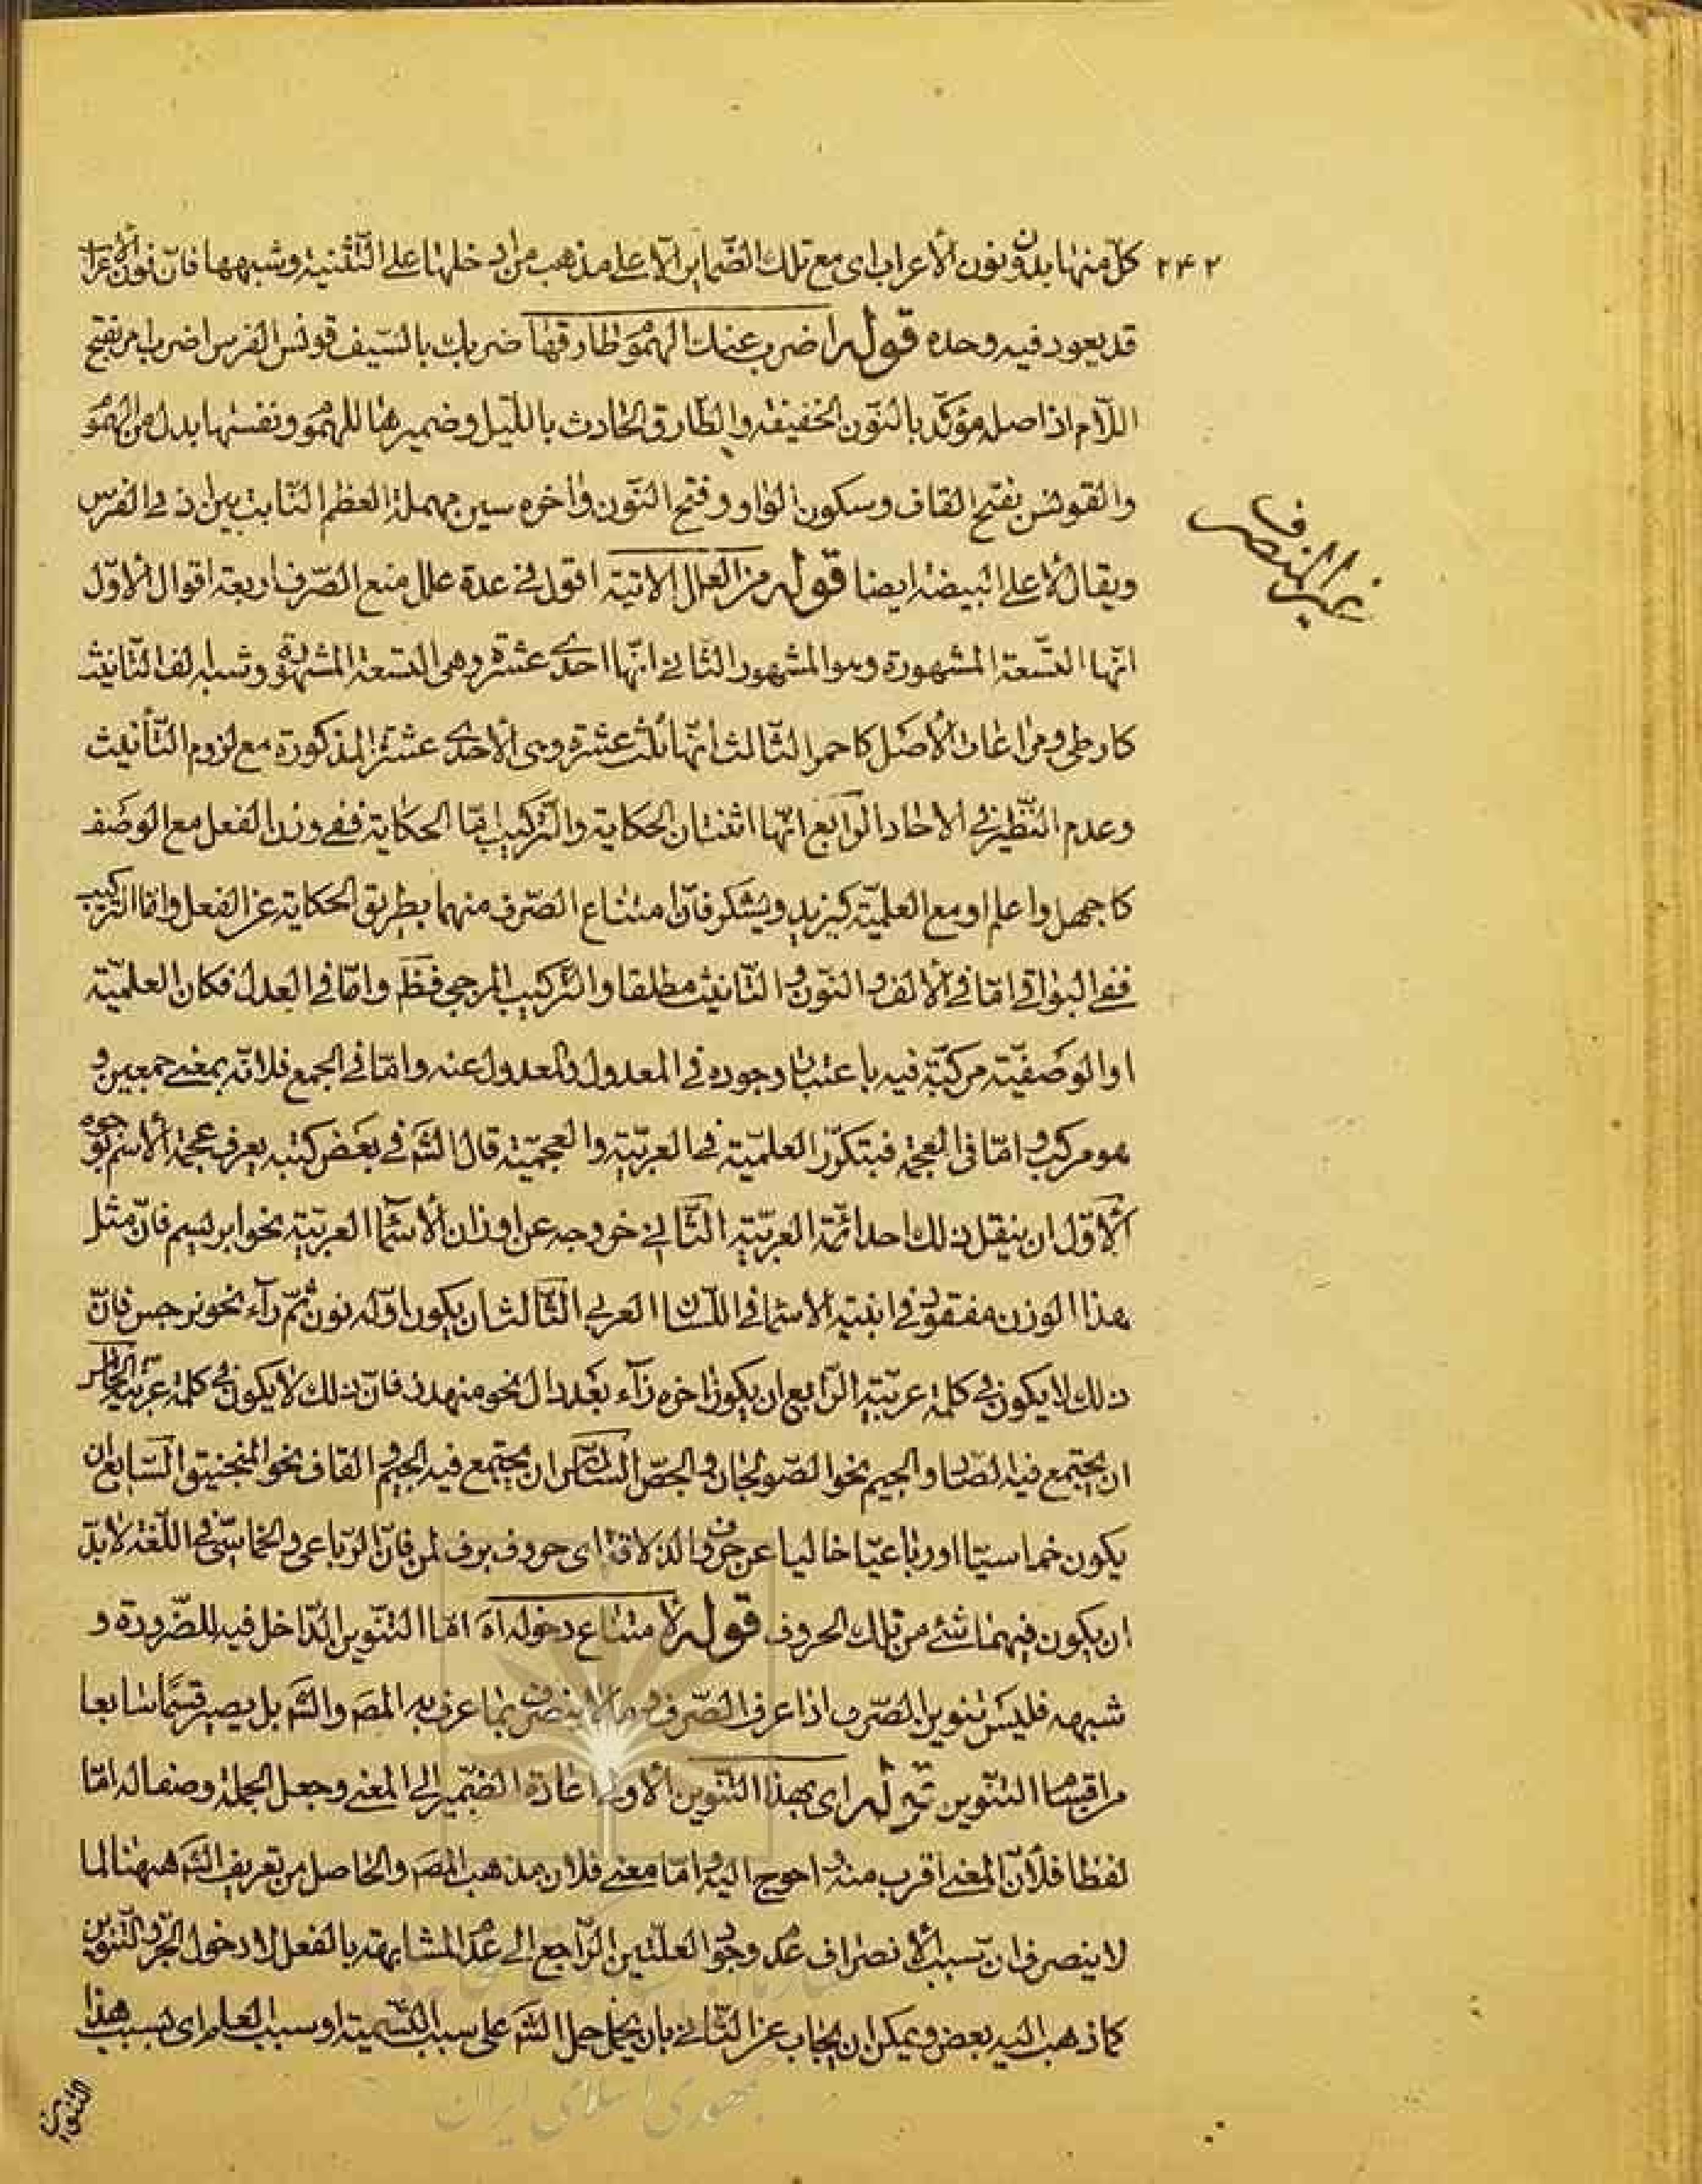 ٢٤٢ كلّ منها بدون نون الأعراب اى مع تلك الضّماير الّا على مذهب من ادخلها على التّثنية وشبهها فانّ نون الأعراب
قد يعود فيه وحده قوله اضرب عنك الهموم طارقها ضربك بالسّيف قونس الفرس اضرب امر بفتح
اللّام اذ اصله مؤكّد بالنّون الخفيفة والطّارق الحادث باللّيل وضميرها للهموم ونفسها بدل من الهموم
والقونس بفتح القاف وسكون الواو وفتح النّون واخره سين مهملة العظم النّابت بين اذنى الفرس
ويقال لأعلى البيضة ايضا قوله من العلل الاتية اقول فى عدة علل منع الصّرف اربعة اقوال الأوّل
انّها التّسعة المشهورة وهو المشهور الثّانى انّها احدى عشرة وهى التسعة المشهورة وشبه الف التّأنيث
كارطى ومراعات الأصل كاحمر الثّالث انّها ثلث عشرة وهى الأحدى عشرة المذكورة مع لزوم التّأنيث
وعدم النّظير فى الاحاد الرّابع انّها اثنتان الحكاية والتّركيب امّا الحكاية ففى وزن الفعل مع الوصف
كاجهل واعلم او مع العلميّة كيزيد ويشكر فانّ امتناع الصّرف منهما بطريق الحكاية عن الفعل وامّا التّركيب
ففى البواقى امّا فى الألف والنّون والتّأنيث مطلقا والتّركيب المزجى فظ وامّا فى العدل فكان العلميّة
او الوصفيّة مركّبة فيه باعتبار وجوده فى المعدول والمعدول عنه وامّا فى الجمع فلانّه بمعنى جمعين و
هو مركب وامّا فى العجمة فبتكرّر العلميّة فى العربيّة والعجميّة قال الشّم فى بعض كتبه يعرف عجمة الأسم بوجوه
الأوّل ان ينقل ذلك احد ائمّة العربيّة الثّانى خروجه عن اوزان الأسماء العربيّة نحو ابريسم فانّ مثل
هذا الوزن مفقود فى ابنية الاسماء فى اللّسان العربى الثّالث ان يكون اوّله نون ثمّ رآء نحو نرجس فانّ
ذلك لا يكون فى كلمة عربيّة الرّابع ان يكون اخره زآء بعد دال نحو مهندز فانّ ذلك لا يكون فى كلمة عربيّة الخامس
ان يجتمع فيه الصّاد والجيم نحو الصّولجان والجصّ السّادس ان يجتمع فيه الجيم والقاف نحو المنجنيق السّابع ان
يكون خماسيّا او رباعيّا خاليا عن حروف الذلاقة اى حروف برف لمن فانّ الرّباعى والخماسىّ فى اللّغة لابدّ
ان يكون فيهما شئ من تلك الحروف قوله لامتناع دخوله اه امّا التنّوين الدّاخل فيه للضّرورة و
شبهه فليس بتنوين الصّرف اذا عرف الصّرف وما لا ينصرف بما عرف به المصَ والشّم بل يصير قسمًا سابعا
من اقسام التنّوين قوله اى بهذا التنّوين الأولى اعادة الضّمير الى المعنى وجعل الجملة وصفا له امّا
لفظا فلأنّ المعنى اقرب منه واحوج اليه وامّا معنى فلان مذهب المصَ والحاصل من تعريف الشّم ههنا لما
لا ينصرف ان سبب الأنصراف عدم وجود العلّتين الرّاجع الى عدم المشابهة بالفعل لا دخول الجرّ والتّنوين
كما ذهب اليه بعض ويمكن ان يجاب عن الثّانى بان يحمل الشّم على سبب التّسمية او سبب العلم اى بسبب هذا
التنوين
غير المنصرف
جمهورى اسلامى ايران